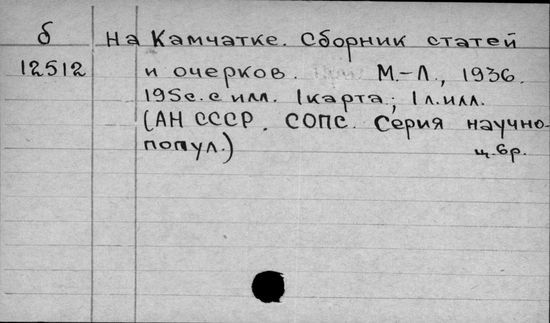 б
12512
На Камчатке. Сборник статей
и очерков. М.-Л., 1936.
195с. с илл. 1карта.; 1л.илл.
(АН СССР. СОПС. Серия научно-
попул.)
ц.6р.